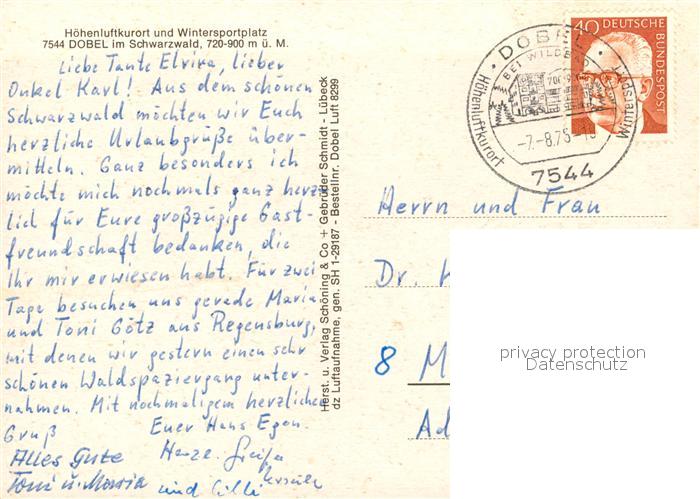 Höhenluftkurort und Wintersportplatz
7544 DOBEL im Schwarzwald, 720-900 m ü. M.
Liebe Tante Elvira, lieber
Onkel Karl! Aus dem schönen
Schwarzwald möchten wir Euch
herzliche Urlaubgrüße über-
mitteln. Ganz besonders ich
möchte mich nochmals ganz herz-
lich für Eure großzügige Gast-
freundschaft bedanken, die
Ihr mir erwiesen habt. Für zwei
Tage besuchen uns gerade Maria
und Toni Götz aus Regensburg,
mit denen wir gestern einen sehr
schönen Waldspaziergang unter-
nahmen. Mit nochmaligem herzlichen
Gruß Euer Hans Egon.
Alles Gute
Toni u. Maria
und
Herst. u. Verlag Schöning & Co + Gebrüder Schmidt - Lübeck
dz Luftaufnahme, gen. SH 1-29187 - Bestellnr. Dobel Luft 8299
40 DEUTSCHE BUNDESPOST
DOBEL
BEI WILDBAD
Höhenluftkurort
Wintersport
-7.-8.75-
7544
Herrn und Frau
Dr.
8 M
Ad
privacy protection
Datenschutz